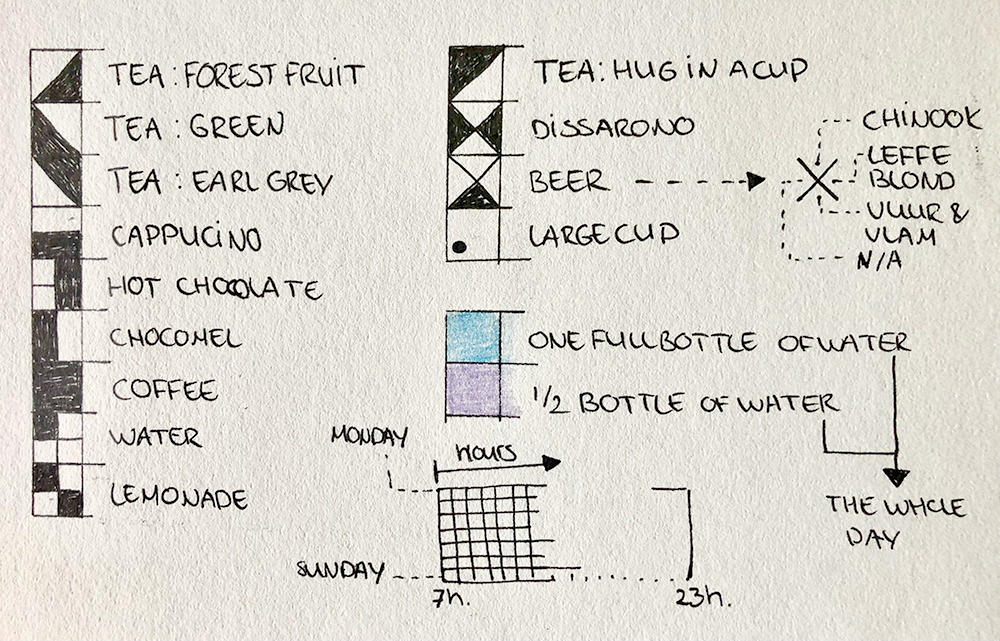 TEA: FOREST FRUIT
TEA: GREEN
TEA: EARL GREY
CAPPUCiNO
HOT CHOCOLATE
CHOCOMEL
COFFEE
WATER
LEMONADE
TEA: HUG iN A CUP
DiSSARONO
BEER
LARGE CUP
CHiNOOK
LEFFE
BLOND
VUUR &
VLAM
N/A
ONE FULL BOTTLE OF WATER
1/2 BOTTLE OF WATER
THE WHOLE
DAY
MONDAY
HOURS
SUNDAY
7h.
23h.